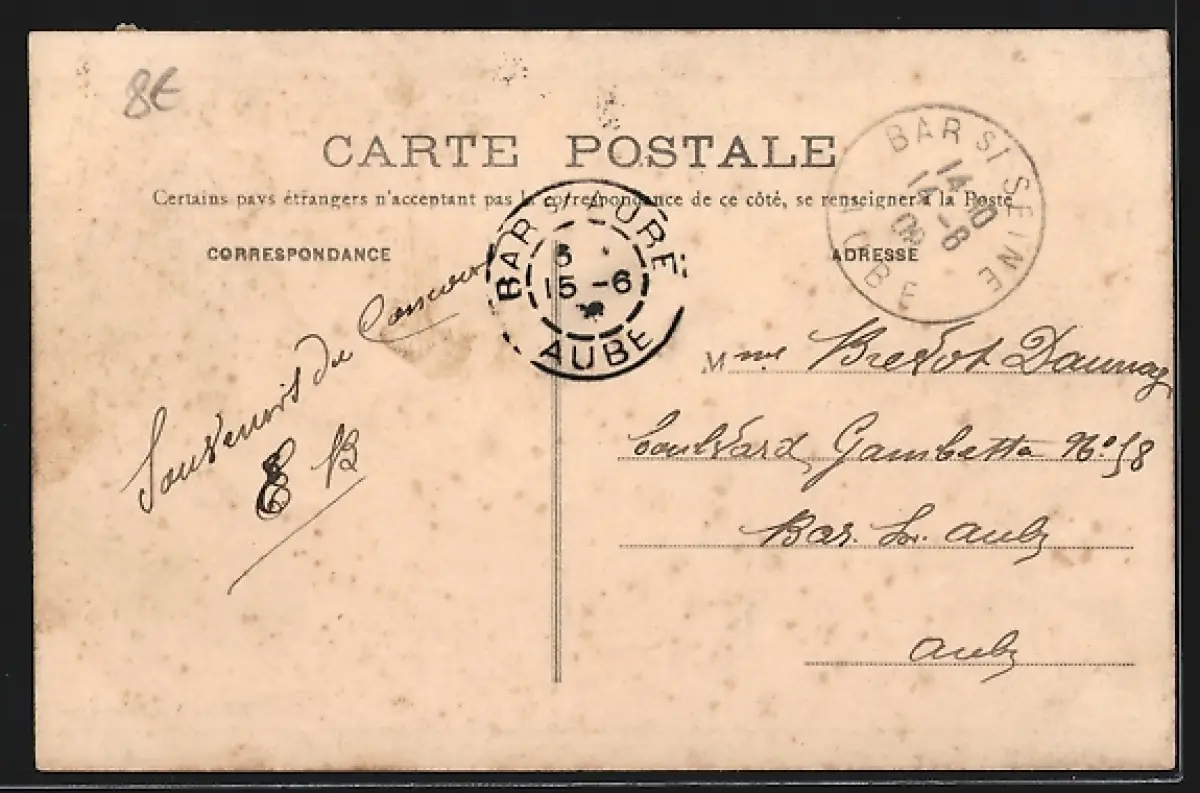 8€
CARTE POSTALE
Certains pays étrangers n'acceptant pas la correspondance de ce côté, se renseigner à la Poste
CORRESPONDANCE
ADRESSE
BAR S/ SEINE
14 30
14 -6
06
AUBE
BAR S/ AUBE
5
15 -6
AUBE
Souvenirs du Concours
E B
Mme Brevot Daunay
boulevard Gambetta No 58
Bar. Sr. Aube
Aube